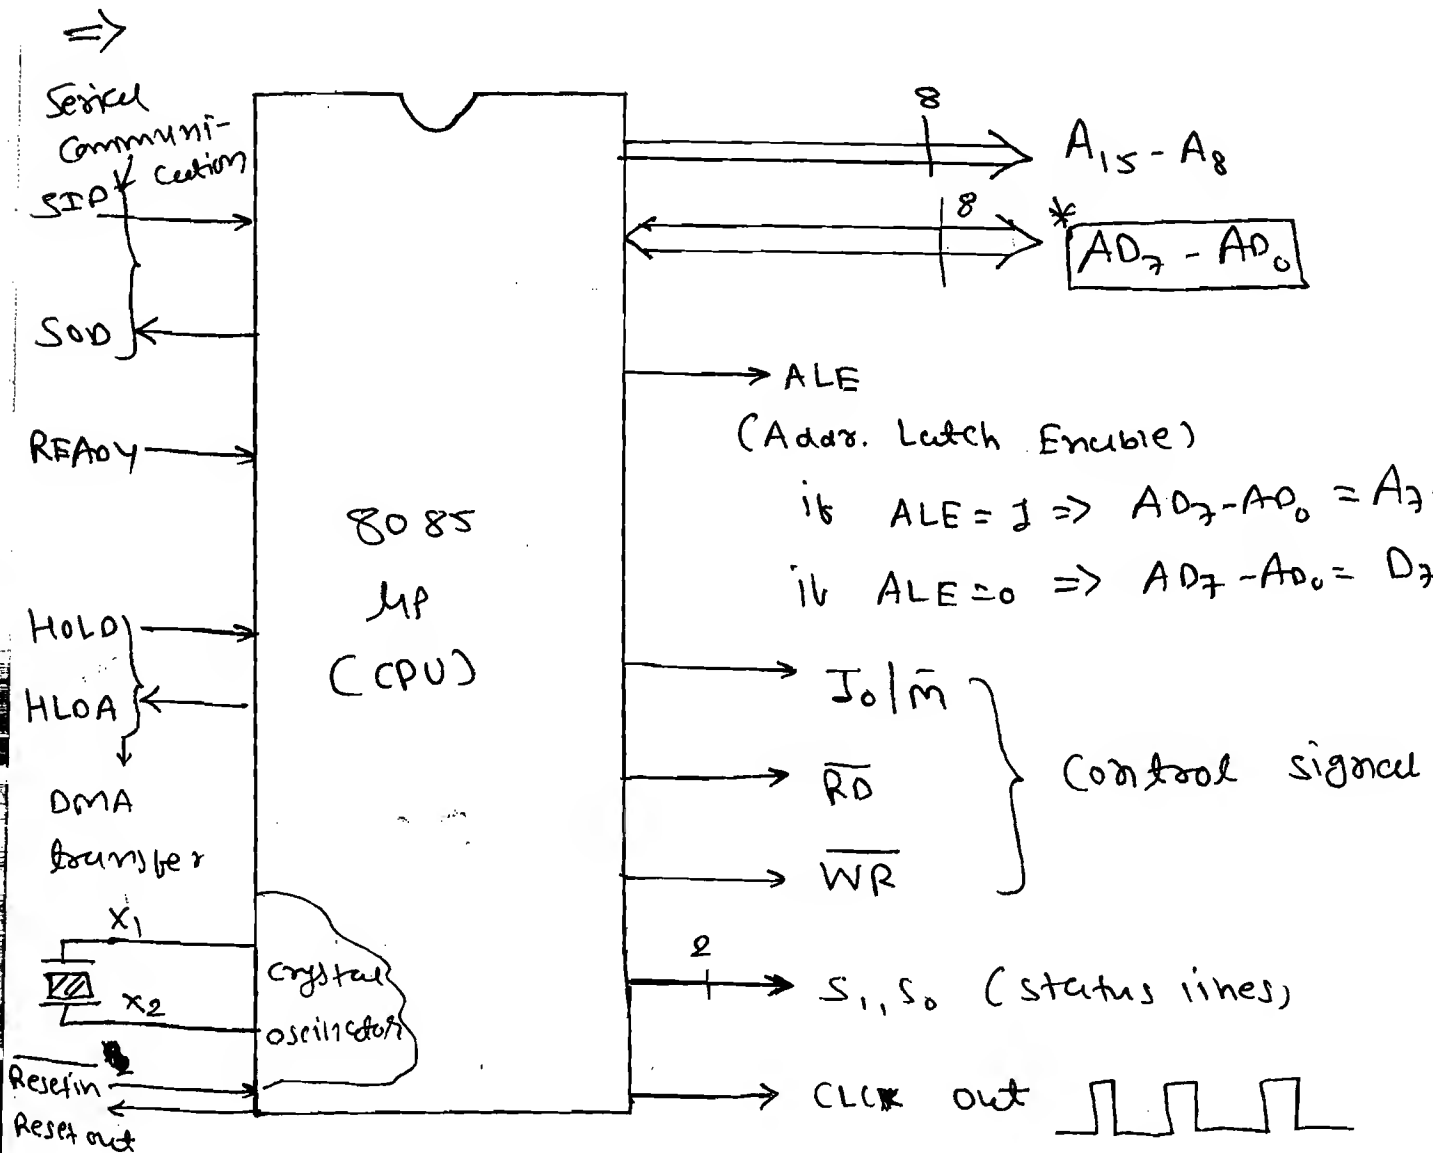 ⇒
Serial
Communi-
cation
SID
SOD
READY
HOLD
HLDA
DMA
transfer
X1
X2
Reset in
Reset out
8085
μP
(CPU)
crystal
oscillator
8
A15 - A8
8
*
AD7 - AD0
ALE
(Addr. Latch Enable)
if ALE = 1 => AD7-AD0 = A7
if ALE = 0 => AD7-AD0 = D7
Io/m̅
R̅D̅
W̅R̅
Control signal
2
S1, S0 (status lines)
CLCK out